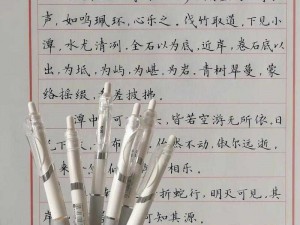 声，如鸣珮环，心乐之。伐竹取道，下见小
潭，水尤清冽，全石以为底，近岸，卷石底以
出，为坻，为屿，为嵁，为岩。青树翠蔓，蒙
络摇缀，差披拂。
潭中可，皆若空游无所依，日
光下，布，佁然不动，俶尔远逝，
来，相乐。
折蛇行，明灭可见。其
可知其源。